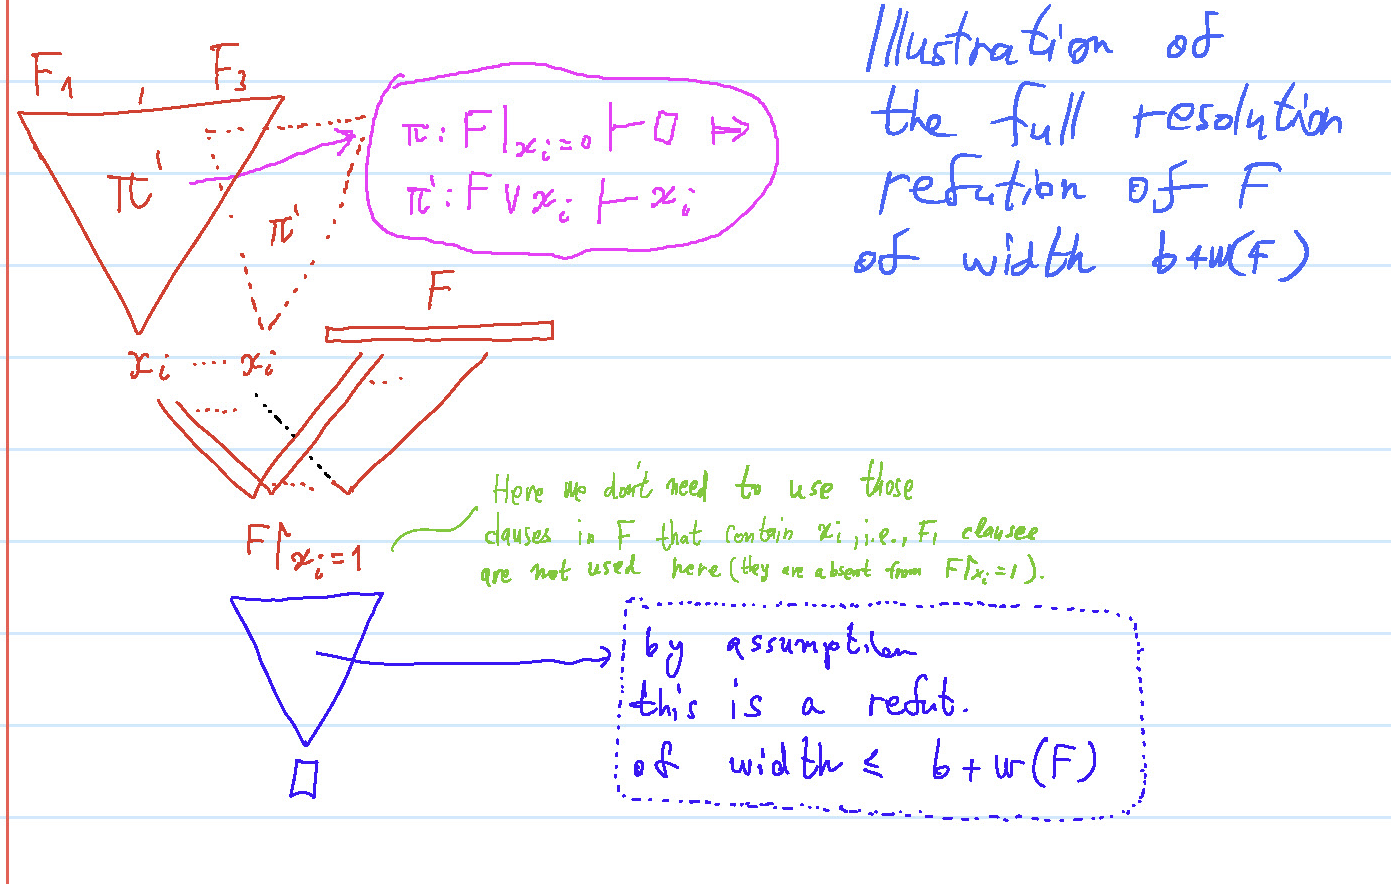 Illustration of
the full resolution
refution of F
of width b+w(F)
F₁ F₃
π' π'
π: F|xᵢ=0 ⊢ □ ⟹
π': F ∨ xᵢ ⊢ xᵢ
F
xᵢ ..... xᵢ
Here we don't need to use those
clauses in F that contain xᵢ, i.e., F₁ clauses
are not used here (they are absent from F↾xᵢ=1).
F↾xᵢ=1
by assumption
this is a refut.
of width ≤ b + w(F)
□